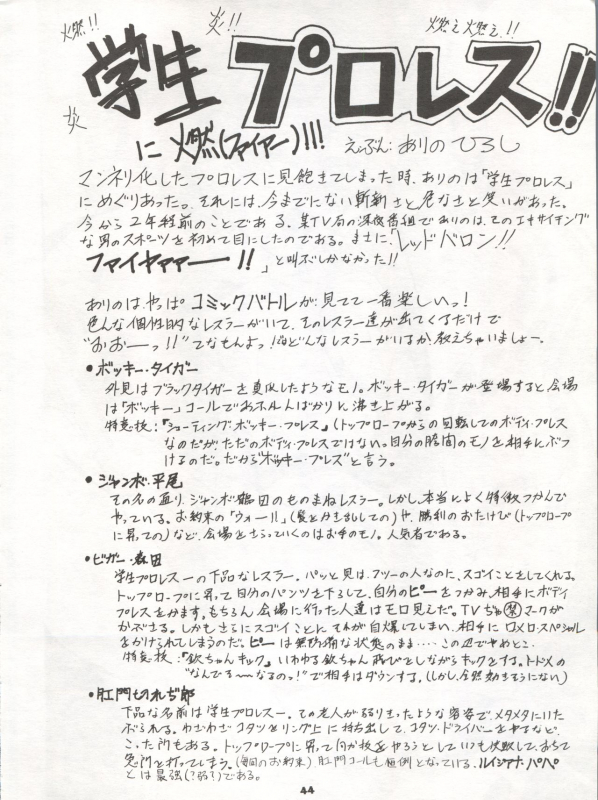 燃!!
炎!!
燃え燃え!!
炎
学生プロレス!!
に燃(ファイアー)!!!
えぶん:ありのひろし
マンネリ化したプロレスに見飽きてしまった時、ありのは「学生プロレス」
にめぐりあった。それには、今までにない斬新さと危なさと笑いがあった。
今から2年程前のことである。某TV局の深夜番組でありのは、そのエキサイチング
な男のスポーツを初めて目にしたのである。まさに「レッドバロン!!
ファイヤァァー!!」と叫ぶしかなかった!!
ありのは、やっぱコミックバトルが、見てて一番楽しいっ!
色んな個性的なレスラーがいて、そのレスラー達が出てくるだけで
"おおーっ!!"てなもんよっ!ではどんなレスラーがいるか、教えちゃいましょー。
●ボッキー・タイガー
外見はブラックタイガーを真似したようなモノ。ボッキー・タイガーが登場すると、会場
は「ボッキー」コールであふれんばかりに沸き上がる。
特意技:「シューティング・ボッキー・プレス」(トップロープからの回転してのボディ・プレス
なのだが、ただのボディ・プレスではない。自分の股間のモノを相手にぶつ
けるのだ。だから"ボッキー・プレス"と言う。
●ジャンボ・平尾
その名の通り、ジャンボ鶴田のものまねレスラー。しかし、本当によく特徴つかんで
やっている。お約束の「ウォー!!」(髪をかき乱しての)や、勝利のおたけび(トップロープ
に昇っての)など、会場をさらっていくのはお手のモノ。人気者である。
●ビガー・森田
学生プロレス一の下品なレスラー。パッと見は、フツーの人なのに、スゴイことをしてくれる。
トップロープに昇って自分のパンツを下ろして、自分のピーをつかみ、相手にボディ
プレスをかます。もちろん、会場に行った人達はモロ見えだ。TVぢゃ㊙マークが
かぶさる。しかもさらにスゴイことに、それが自爆してしまい、相手にロメロ・スペシャル
をかけられてしまうのだ。ピーは無防備な状態のまま‥‥この辺でやめとこ。
特意技:「欽ちゃんキック」いわゆる欽ちゃん飛びをしながらキックをする。トドメの
"なんでそ〜〜なるのっ!"で相手はダウンする。(しかし、全然効きそうにない)
●肛門切れぢ郎
下品な名前は学生プロレス一。その老人が弱りきったような容姿で、メタメタにいた
ぶられる。わざわざコタツをリング上に持ち出して、コタツ・ドライバーをやるなど、
こった所もある。トップロープに昇って何か技をやろうとしていつも失敗して、おちて
急所を打ってしまう。(毎回のお約束)肛門コールも恒例となっている。ルイジアナ・パペペ
とは最強(?弱?)である。
44